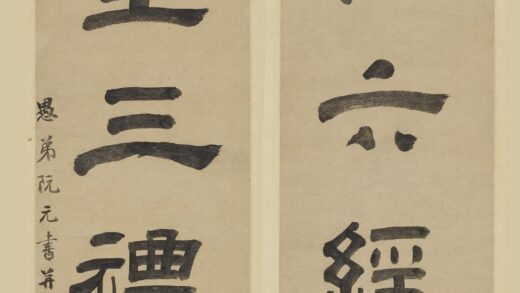 六經
三禮
愚弟阮元書并